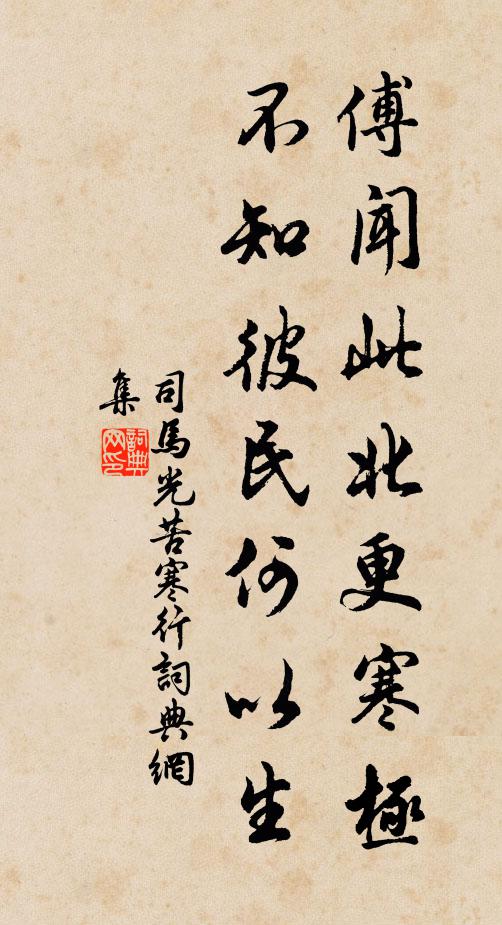 傅聞此北更寒極
不知彼民何以生
司馬光苦寒行詞典網
集
詞典
网印